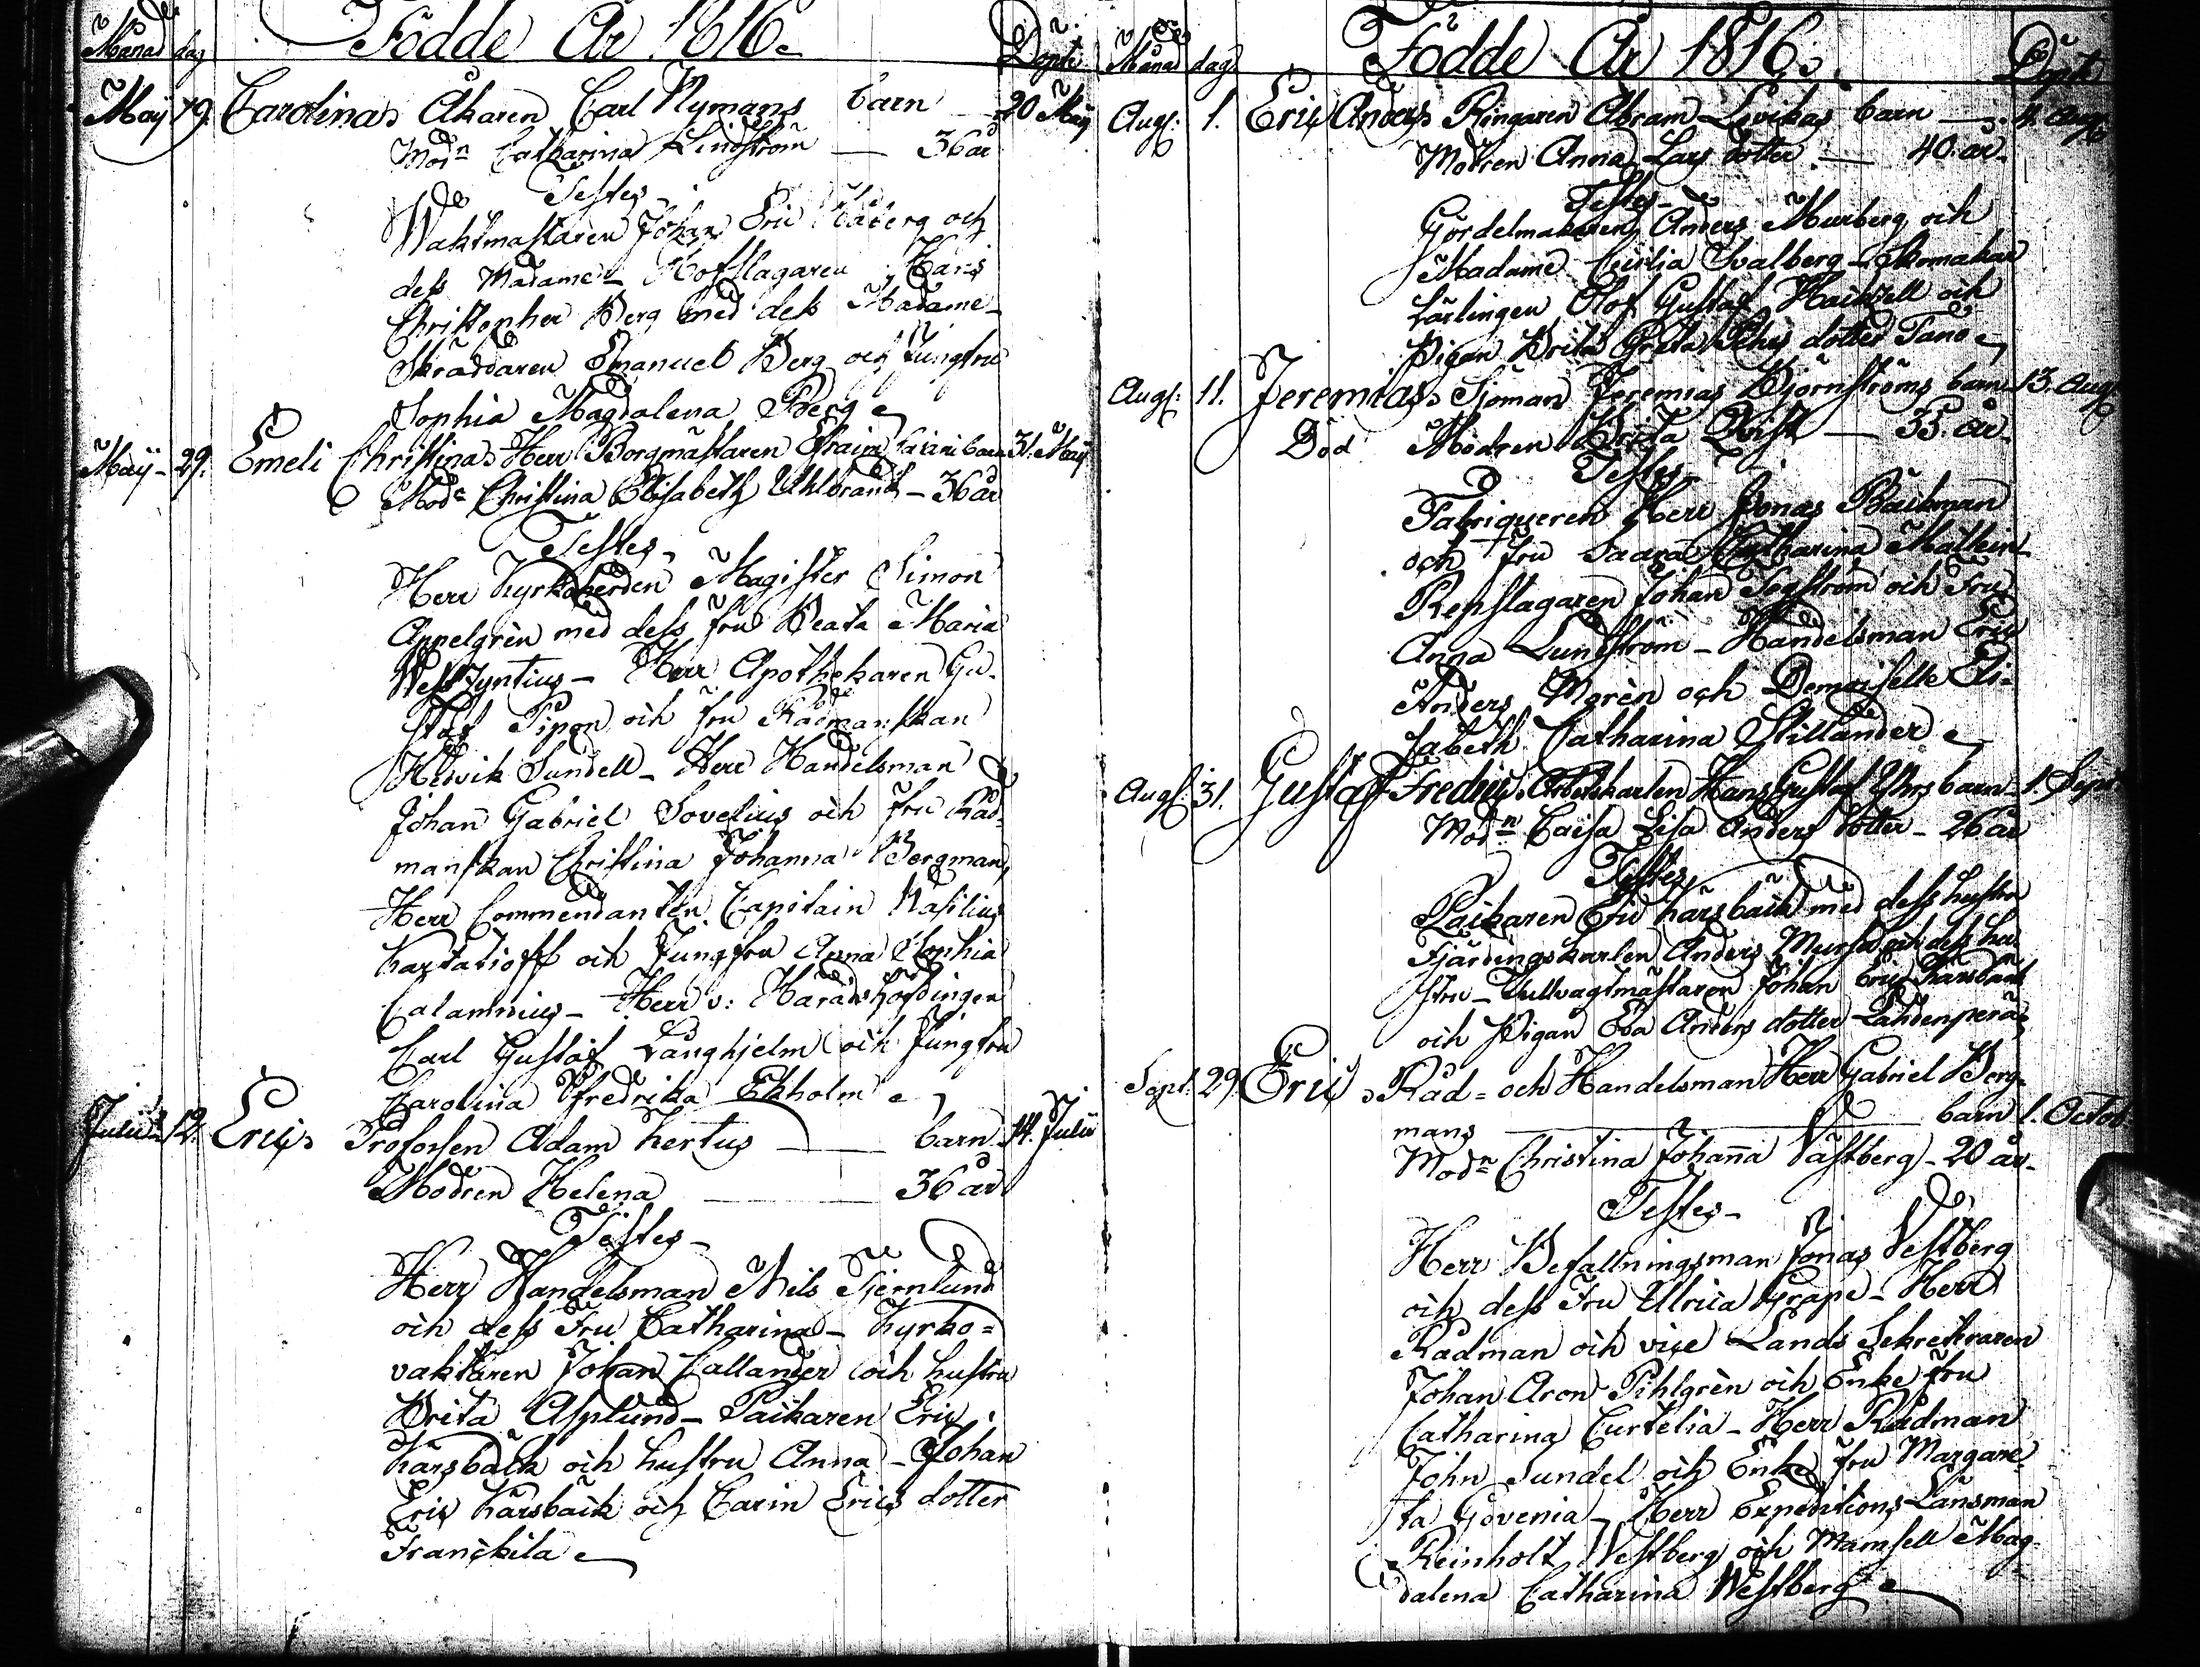 Månad dag Födde År 1816. Döpte
May 19. Carolina, Åkaren Carl Nymans barn 20 May
Modn Catharina Lindström — 36 år
Testes
Waktmästaren Johan Eric och
dess Madame – Hofslagaren Hans
Christopher Berg med dess Madame –
Skräddaren Emanuel Berg och Jungfru
Sophia Magdalena Berg
Maij – 29. Emeli Christina, Herr Borgmästaren barn 31. Maij
Modr Christina Elisabeth Uhlbrand – 36 år
Testes –
Herr Kyrkoherden Magister Simon
Appelgrèn med dess fru Beata Maria
Westzyntius – Herr Apothekaren Gu-
staf Pipon och fru Rådmanskan
Hedvik Sundell – Herr Handelsman
Johan Gabriel Sovelius och fru Råd-
manskan Christina Johanna Bergman,
Herr Commendanten Capitain Wasilius
och Jungfru Anna Sophia
Calamnius – Herr v: Häradshöfdingen
Carl Gustaf Långhjelm och Jungfru
Carolina Fredrika Ekholm
Julii 12. Eric, Profossen Adam Kertus — barn 14. Julii
Modren Helena — 36 år
Testes –
Herr Handelsman Nils Tjernlund
och dess Fru Catharina – Kyrko=
vaktaren Johan Callander och hustru
Brita Asplund – Packaren Eric
Karsbäck och hustru Anna – Johan
Eric Karsbäck och Carin Erics dotter
Franckila
Månad dag Födde År 1816. Döpte
Augs: 1. Eric Anders, Ringaren Abram Levikas barn — 4. Aug
Modren Anna Lars dotter — 40. år
Testes –
Gördelmakaren Anders Murberg och
Madame Cecilia Svalberg – Skomakar
Lärlingen Olof Gustaf och
Pigan Brita Greta dotter Tano
Augs: 11. Jeremias, Sjöman Jeremias Björnströms barn 13. Augs
Död Modren Brita Qvist — 35. år
Testes –
Fabriqueren Herr Jonas Backman
och fru Saara Catharina Mathein
Repslagaren Johan Segström och Fru
Anna Lundström – Handelsman Eric
Anders Ngrèn och Demoiselle Eli-
sabeth Catharina Stillander
Augs: 31. Gustaf Fredric, Arbetskarlen Hans Gustaf barn 1. Sept:
Modn Caisa Lisa Anders dotter – 26 år
Testes
Packaren Eric Karsbäck med dess hustru
Fjärdingskarlen Anders och dess hu-
stru – Tullvagtmästaren Johan Eric Karsbäck
och Pigan Eva Anders dotter Lahdenperä
Sept: 29. Eric, Råd= och Handelsman Herr Gabriel Berg-
mans — barn 1. Octob:
Modn Christina Johanna Västberg – 20 år
Testes –
Herr Befallningsman Jonas Vestberg
och dess Fru Ulrica Grape – Herr
Rådman och vice Lands Sekreteraren
Johan Aron Pihlgrèn och Enke fru
Catharina Curtelia – Herr Rådman
John Sundel och Enke fru Margare-
ta Govenia – Herr Expeditions Länsman
Reinholt Westberg och Mamsell Mag-
dalena Catharina Westberg